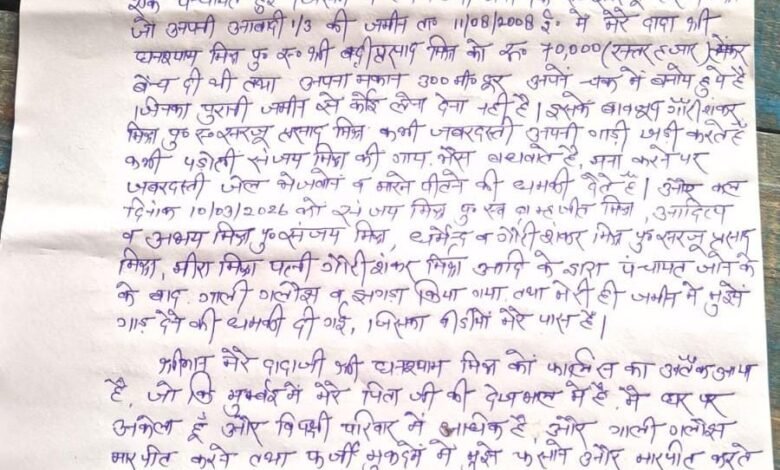 एक पंचायत हुई
जो अपनी आबादी 1/3 की जमीन ता० 11/08/2008 ई० में मेरे दादा श्री
घनश्याम मिश्र पु० स्व० श्री बद्रीप्रसाद मिश्र को रू० 70,000 (सत्तर हजार) लेकर
बेच दी थी तथा अपना मकान 300 मी० दूर अपने चक में बनाये हुये है
जिनका पुरानी जमीन से कोई लेना देना नही है। इसके बावजूद गौरीशंकर
मिश्र पु० स्व० सरजू प्रसाद मिश्र कभी जबरदस्ती अपनी गाड़ी खड़ी करते हैं
कभी पड़ोसी संजय मिश्र की गाय भैंस बंधवाते है, मना करने पर
जबरदस्ती जेल भेजवाने व मारने पीटने की धमकी देते हैं। और कल
दिनांक 10/03/2026 को संजय मिश्र पु० स्व० मिश्र, आदित्य
व अभय मिश्र पु० संजय मिश्र, धर्मेन्द्र व गौरीशंकर मिश्र पु० सरजू प्रसाद
मिश्रा, मीरा मिश्रा पत्नी गौरीशंकर मिश्रा आदि के द्वारा पंचायत जाने के
के बाद गाली गलौज व झगड़ा किया गया तथा मेरी ही जमीन में मुझे
गाड़ देने की धमकी दी गई, जिसका वीडियो मेरे पास है।
श्रीमान मेरे दादाजी श्री घनश्याम मिश्र को फालिस का अटैक आया
है, जो कि मुम्बई में मेरे पिता जी की देखभाल में है, मै घर पर
अकेला हूँ और विपक्षी परिवार में अधिक है, और गाली गलौज
मारपीट करने तथा फर्जी मुकदमें में मुझे फसाने और मारपीट करते